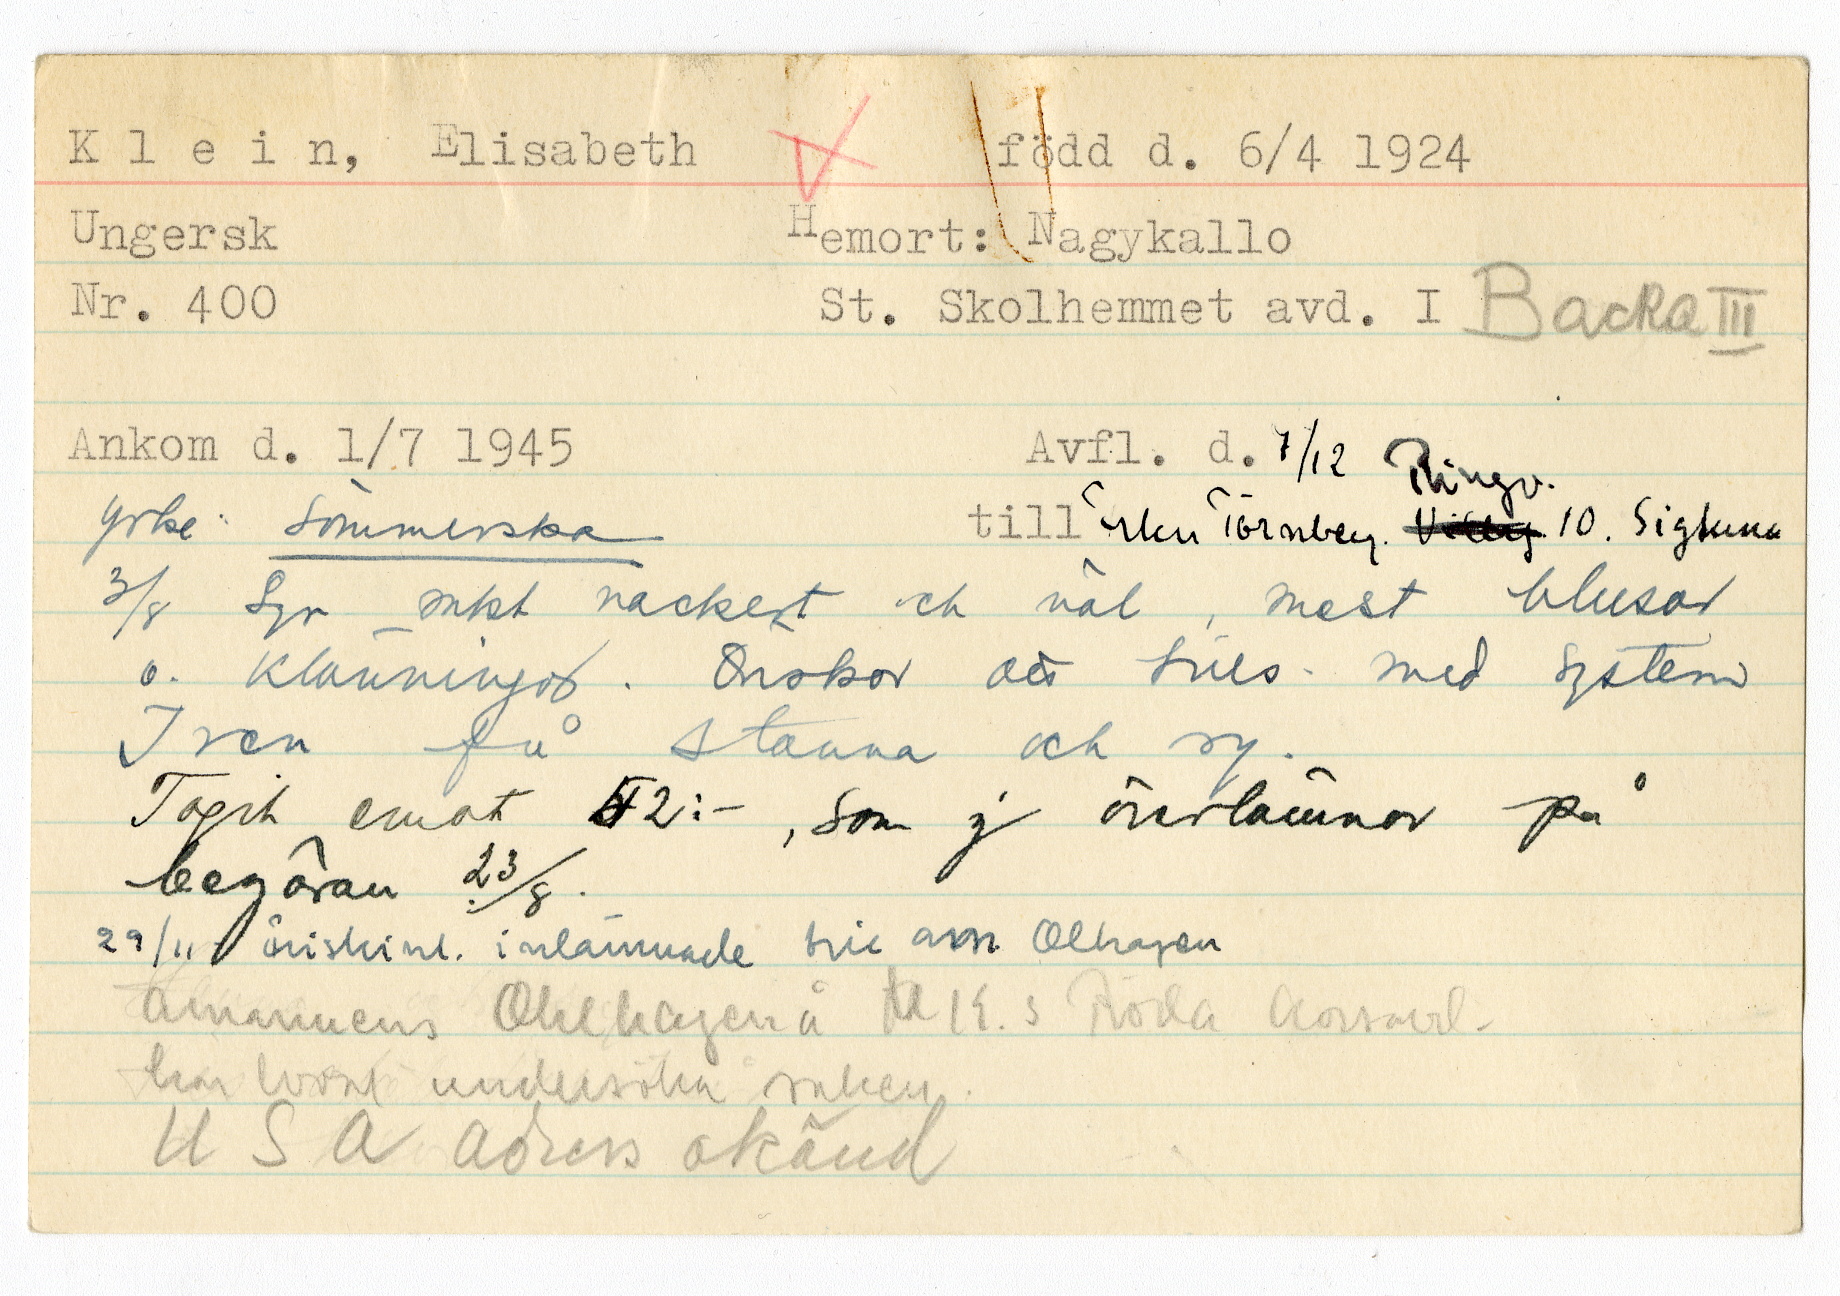 Klein, Elisabeth född d. 6/4 1924
Ungersk Hemort: Nagykallo
Nr. 400 St. Skolhemmet avd. I Backa III
Ankom d. 1/7 1945 Avfl. d. 7/12 Ringv.
Yrke: Sömmerska till Törnberg. 10. Sigtuna
3/8 Syr mkt vackert och väl, mest blusar
o. klänningar. Önskar att tills. med system
Iren få stanna och sy.
Tagit emot 2:-, som j överlämnar på
begäran 23/8.
29/11 inlämnade Olhagen
Amanuens Ohlhagen å K.s Röda
har lovat undersöka saken.
USA adress okänd